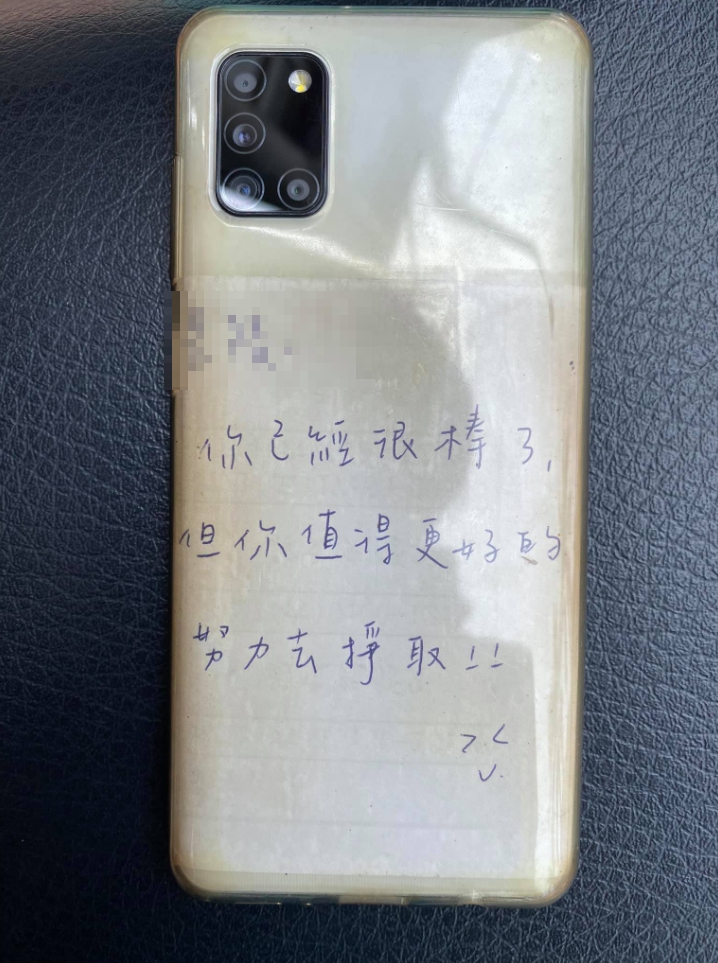 你已經很棒了,
但你值得更好的
努力去掙取!!